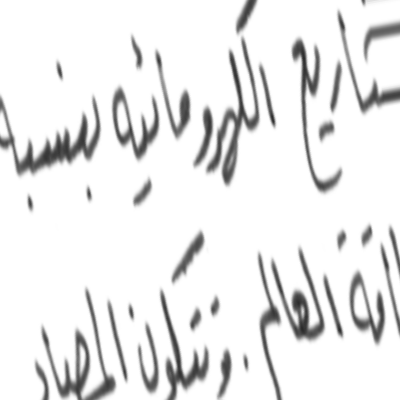 مشاريع الكهرومائيه بنسبه
طاقة العالم . وتتكون المصاد